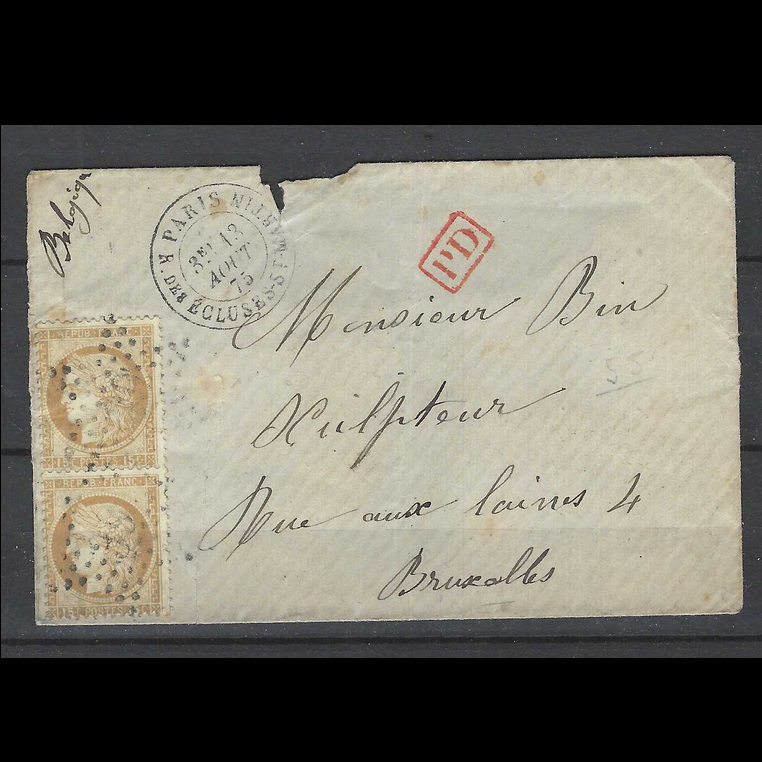 Belgique
PARIS R. DES ECLUSES-ST-MARTIN
3E/ 13
AOUT
75
PD
Monsieur Bin
Sculpteur
Rue aux laines 4
Bruxelles
REPUB FRANC
15 C. POSTES 15 C.
REPUB FRANC
15 C. POSTES